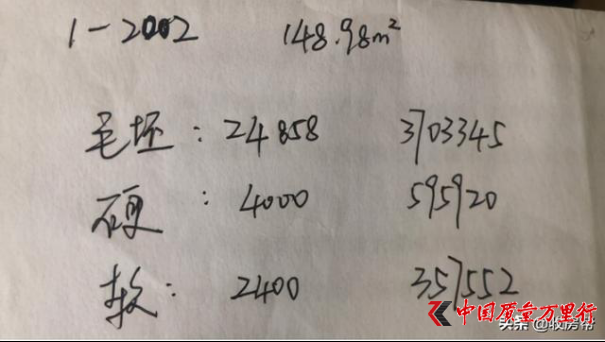 1-2002 148.98m²
毛坯: 24858 3703345
硬: 4000 595920
软: 2400 357552
中国质量万里行
头条 @收房帮